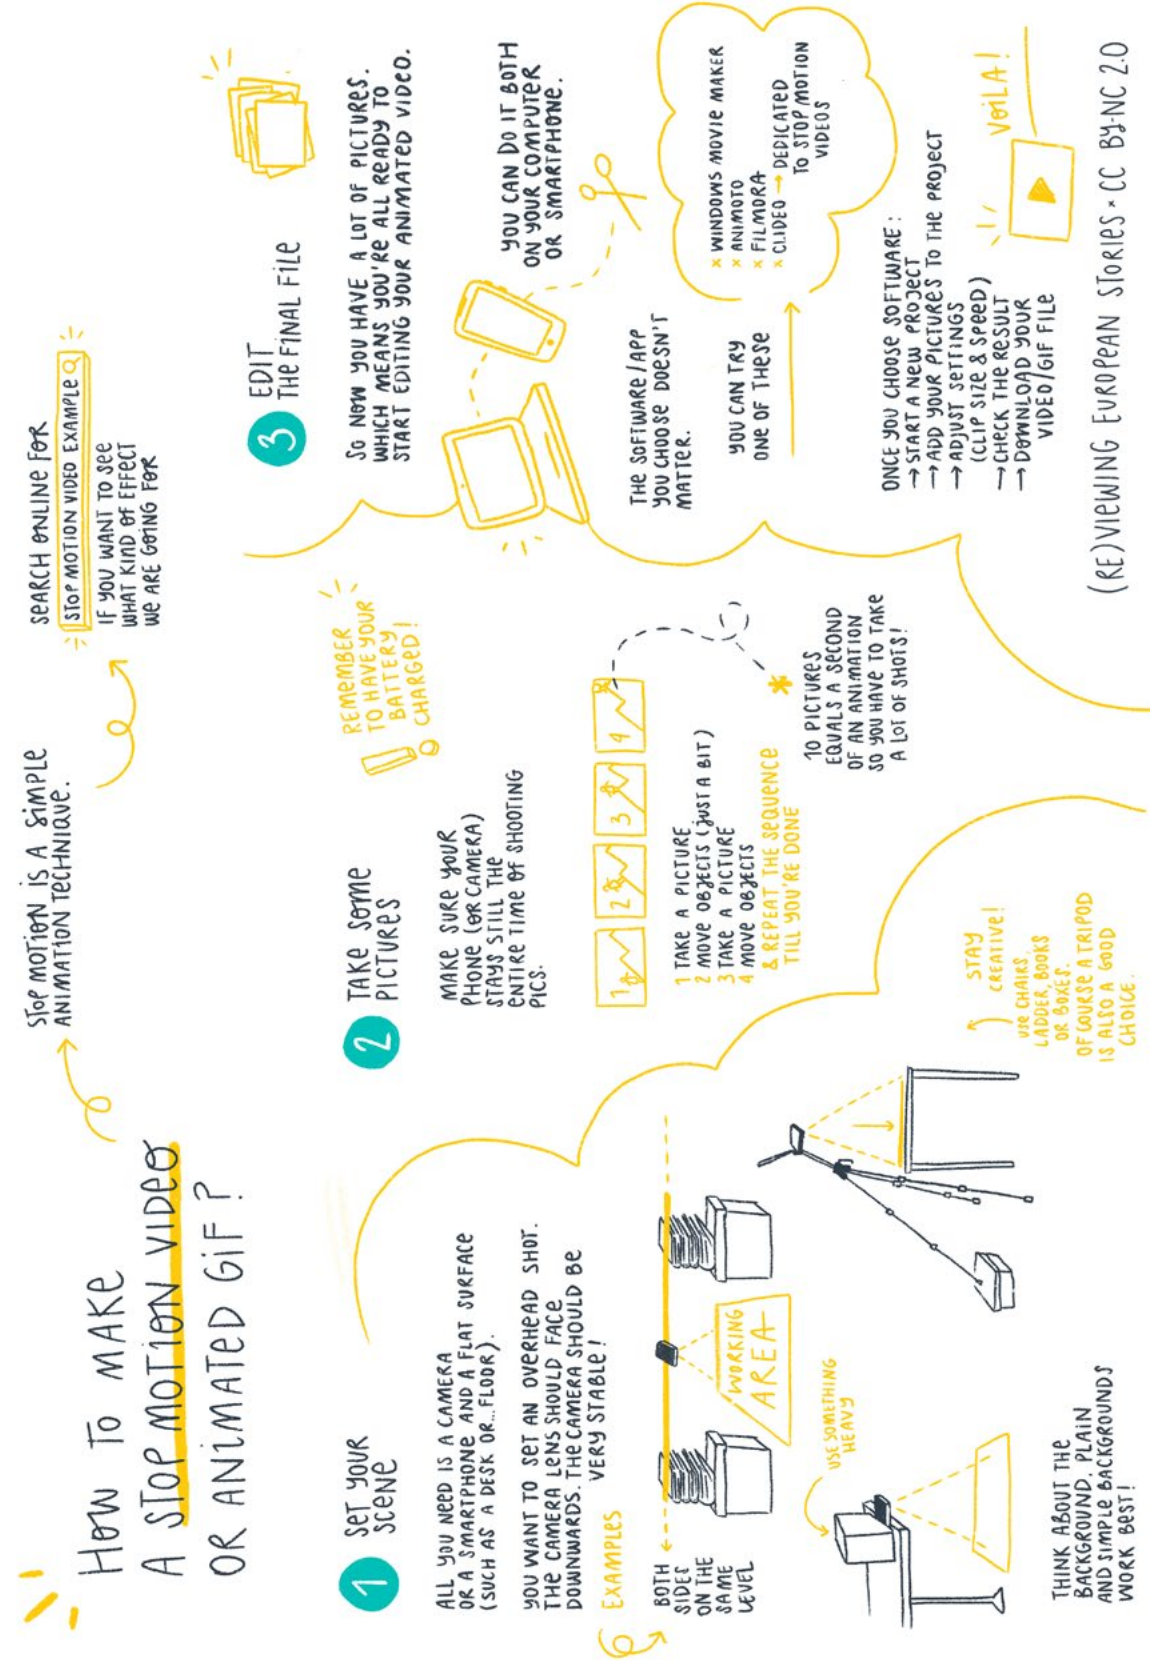 HOW TO MAKE
A STOP MOTION VIDEO
OR ANIMATED GIF?
STOP MOTION IS A SIMPLE
ANIMATION TECHNIQUE.
SEARCH ONLINE FOR
STOP MOTION VIDEO EXAMPLE
IF YOU WANT TO SEE
WHAT KIND OF EFFECT
WE ARE GOING FOR
1 SET YOUR
SCENE
ALL YOU NEED IS A CAMERA
OR A SMARTPHONE AND A FLAT SURFACE
(SUCH AS A DESK OR...FLOOR).
YOU WANT TO SET AN OVERHEAD SHOT.
THE CAMERA LENS SHOULD FACE
DOWNWARDS. THE CAMERA SHOULD BE
VERY STABLE!
EXAMPLES
BOTH
SIDES
ON THE
SAME
LEVEL
WORKING
AREA
USE SOMETHING
HEAVY
STAY
CREATIVE!
USE CHAIRS,
LADDER, BOOKS
OR BOXES.
OF COURSE A TRIPOD
IS ALSO A GOOD
CHOICE.
THINK ABOUT THE
BACKGROUND. PLAIN
AND SIMPLE BACKGROUNDS
WORK BEST!
2 TAKE SOME
PICTURES
REMEMBER
TO HAVE YOUR
BATTERY
CHARGED!
MAKE SURE YOUR
PHONE (OR CAMERA)
STAYS STILL THE
ENTIRE TIME OF SHOOTING
PICS.
1 2 3 4
1 TAKE A PICTURE
2 MOVE OBJECTS (JUST A BIT)
3 TAKE A PICTURE
4 MOVE OBJECTS
& REPEAT THE SEQUENCE
TILL YOU'RE DONE
*
10 PICTURES
EQUALS A SECOND
OF AN ANIMATION
SO YOU HAVE TO TAKE
A LOT OF SHOTS!
3 EDIT
THE FINAL FILE
SO NOW YOU HAVE A LOT OF PICTURES.
WHICH MEANS YOU'RE ALL READY TO
START EDITING YOUR ANIMATED VIDEO.
YOU CAN DO IT BOTH
ON YOUR COMPUTER
OR SMARTPHONE.
THE SOFTWARE/APP
YOU CHOOSE DOESN'T
MATTER.
YOU CAN TRY
ONE OF THESE
× WINDOWS MOVIE MAKER
× ANIMOTO
× FILMORA
× CLIDEO → DEDICATED
TO STOP MOTION
VIDEOS
ONCE YOU CHOOSE SOFTWARE:
→ START A NEW PROJECT
→ ADD YOUR PICTURES TO THE PROJECT
→ ADJUST SETTINGS
(CLIP SIZE & SPEED)
→ CHECK THE RESULT
→ DOWNLOAD YOUR
VIDEO/GIF FILE
VOILA!
(RE)VIEWING EUROPEAN STORIES × CC BY-NC 2.0